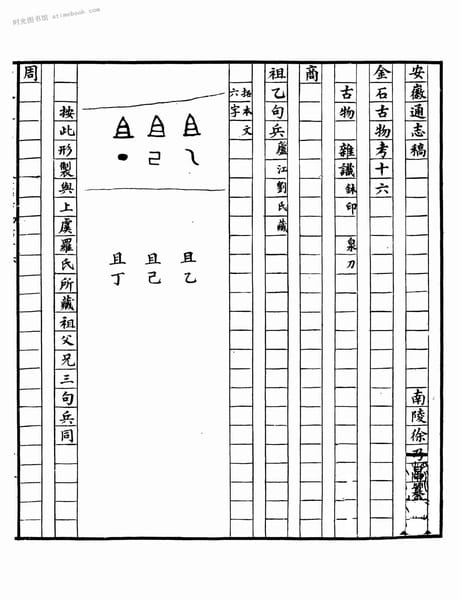 时光图书馆 atimebook.com
安徽通志稿 南陵徐乃昌纂
金石古物考十六
古物 雜識 鉥印 泉刀
商
祖乙句兵 廬江劉氏藏
括本文六字
且乙
且己
且丁
按此形製與上虞羅氏所藏祖父兄三句兵同
周